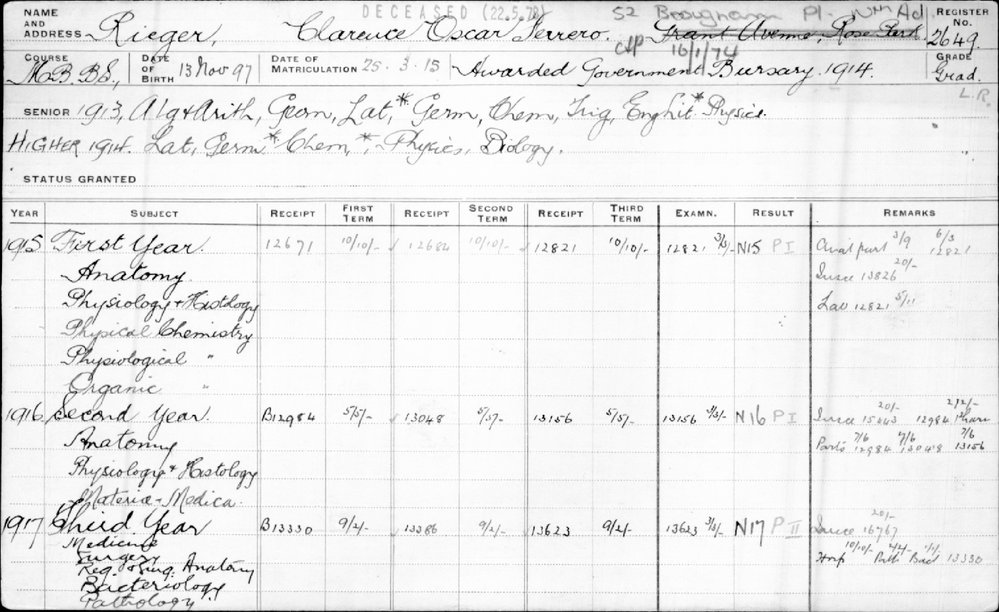 DECEASED (22.5.78) 52 Brougham Pl- Nth Ad.
NAME AND ADDRESS Rieger, Clarence Oscar Ferrero. Grant Avenue, Rose Park REGISTER No. 2649.
16/1/74
COURSE M.B. B.S., DATE OF BIRTH 13 Nov 97 DATE OF MATRICULATION 25.3.15 Awarded Government Bursary 1914. GRADE Grad.
L.R.
SENIOR 1913, Alg & Arith, Geom, Lat,* Germ, Chem, Trig, Eng Lit* Physics.
HIGHER 1914. Lat, Germ* Chem,*, Physics, Biology.
STATUS GRANTED
YEAR SUBJECT RECEIPT FIRST TERM RECEIPT SECOND TERM RECEIPT THIRD TERM EXAMN. RESULT REMARKS
1915 First Year. 12671 10/10/- 12684 10/10/- 12821 10/10/- 12821 3/3/- N15 P I 3/9 12821 6/3
Anatomy. 13826 20/-
Physiology & Histology 12821 5/11
Physical Chemistry
Physiological "
Organic "
1916 Second Year. B12984 5/5/- 13048 5/5/- 13156 5/5/- 13156 3/3/- N16 P I 15643 20/- 12984 2/2/-
Anatomy Parts 12984 7/6 13048 7/6 13156 7/6
Physiology & Histology
Materia-Medica.
1917 Third Year B13330 9/2/- 13386 9/2/- 13623 9/2/- 13623 3/3/- N17 P II 16767 20/-
Medicine Hosp 10/10/- Path 4/4/- Bact 1/1/- 13330
Surgery
Reg & Surg. Anatomy
Bacteriology
Pathology.